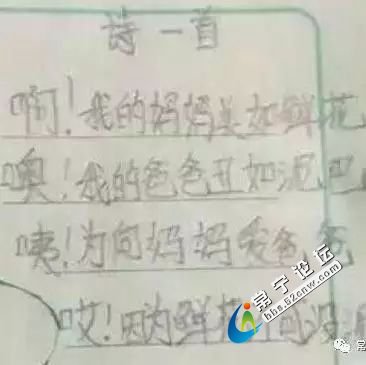 诗一首
啊!我的妈妈美如鲜花
噢!我的爸爸丑如泥巴
咦!为何妈妈爱爸爸
哎!因为鲜花
常宁论坛
bbs.52cnw.com
常